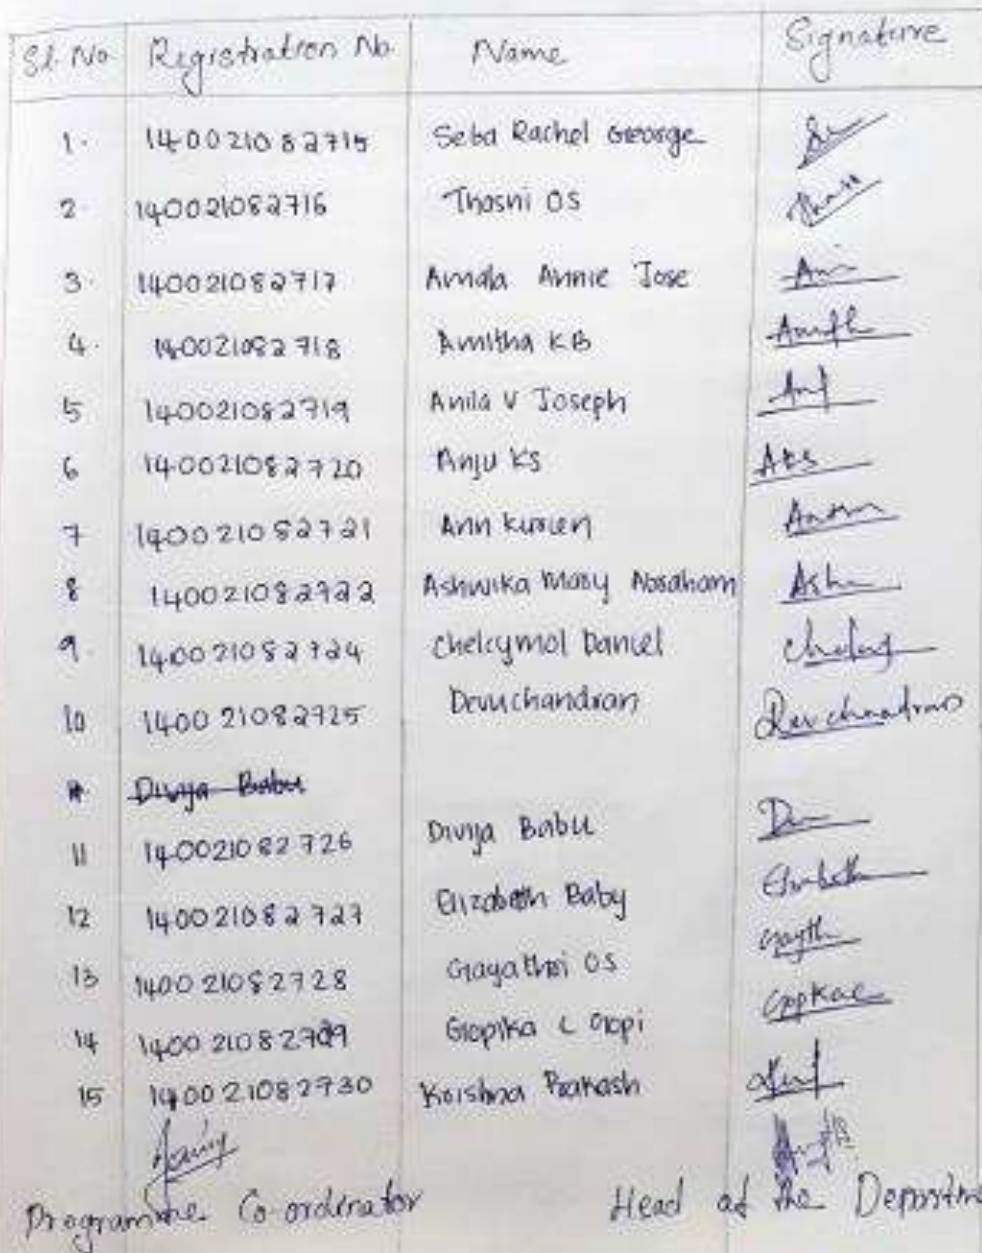 Sl. No Registration No. Name Signature
1. 140021082715 Seba Rachel George
2. 140021082716 Thasni OS
3. 140021082717 Amala Annie Jose
4. 140021082718 Amitha KB
5 140021082719 Anila V Joseph
6 140021082720 Anju KS AKS
7 140021082721 Ann Kurien
8 140021082722 Ashwika Mary Abraham
9. 140021082724 Chelcymol Daniel
10 140021082725 Devuchandran Devuchandran
Divija Babu
11 140021082726 Divija Babu
12 140021082727 Elizabeth Baby Elizabeth
13 140021082728 Gayathri OS
14 140021082729 Gopika C Gopi
15 140021082730 Krishna Prakash
Programme Co-ordinator Head of the Departme